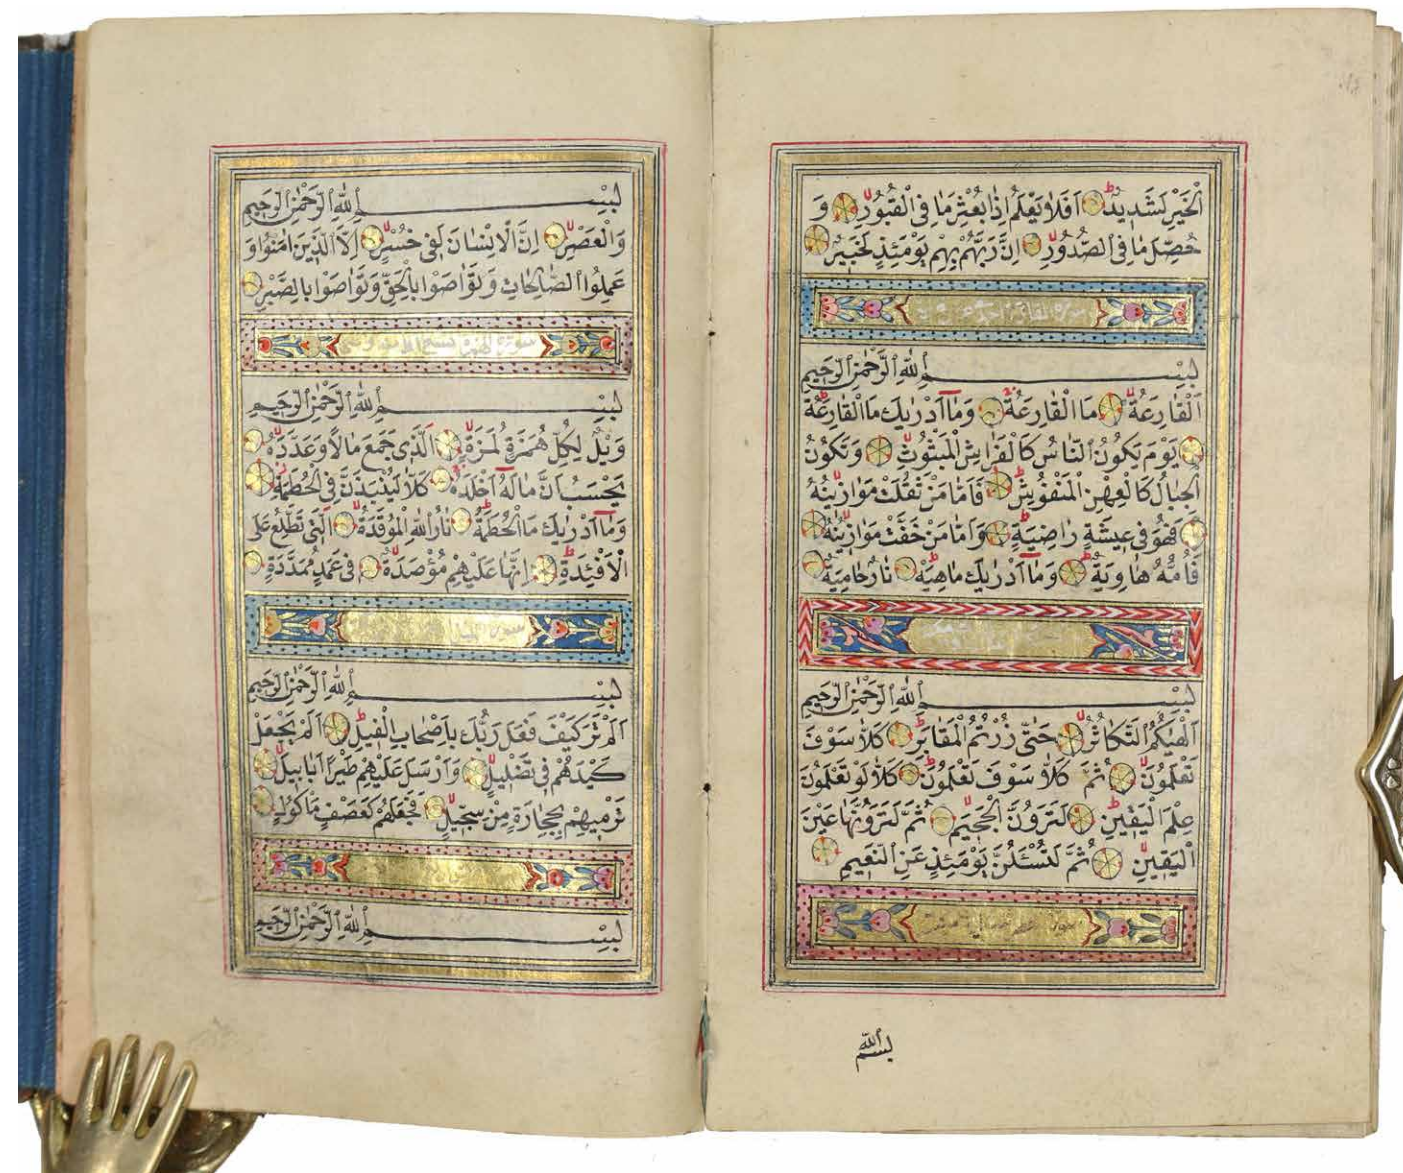 الْخَيْرِ لَشَدِيدٌ اَفَلَا يَعْلَمُ اِذَا بُعْثِرَ مَا فِى الْقُبُورِ وَ
حُصِّلَ مَا فِى الصُّدُورِ اِنَّ رَبَّهُمْ بِهِمْ يَوْمَئِذٍ لَخَبِيرٌ
سورة القارعة
بِسْمِ اللّٰهِ الرَّحْمٰنِ الرَّحِيمِ
اَلْقَارِعَةُ مَا الْقَارِعَةُ وَمَا اَدْرٰيكَ مَا الْقَارِعَةُ
يَوْمَ تَكُونُ النَّاسُ كَالْفَرَاشِ الْمَبْثُوثِ وَتَكُونُ
الْجِبَالُ كَالْعِهْنِ الْمَنْفُوشِ فَاَمَّا مَنْ ثَقُلَتْ مَوَازِينُهُ
فَهُوَ فِى عِيشَةٍ رَاضِيَةٍ وَاَمَّا مَنْ خَفَّتْ مَوَازِينُهُ
فَاُمُّهُ هَاوِيَةٌ وَمَا اَدْرٰيكَ مَاهِيَهْ نَارٌ حَامِيَةٌ
بِسْمِ اللّٰهِ الرَّحْمٰنِ الرَّحِيمِ
اَلْهٰيكُمُ التَّكَاثُرُ حَتّٰى زُرْتُمُ الْمَقَابِرَ كَلَّا سَوْفَ
تَعْلَمُونَ ثُمَّ كَلَّا سَوْفَ تَعْلَمُونَ كَلَّا لَوْ تَعْلَمُونَ
عِلْمَ الْيَقِينِ لَتَرَوُنَّ الْجَحِيمَ ثُمَّ لَتَرَوُنَّهَا عَيْنَ
الْيَقِينِ ثُمَّ لَتُسْئَلُنَّ يَوْمَئِذٍ عَنِ النَّعِيمِ
بسم الله
بِسْمِ اللّٰهِ الرَّحْمٰنِ الرَّحِيمِ
وَالْعَصْرِ اِنَّ الْاِنْسَانَ لَفِى خُسْرٍ اِلَّا الَّذِينَ اٰمَنُوا وَ
عَمِلُوا الصَّالِحَاتِ وَتَوَاصَوْا بِالْحَقِّ وَتَوَاصَوْا بِالصَّبْرِ
بِسْمِ اللّٰهِ الرَّحْمٰنِ الرَّحِيمِ
وَيْلٌ لِكُلِّ هُمَزَةٍ لُمَزَةٍ اَلَّذِى جَمَعَ مَالًا وَعَدَّدَهُ
يَحْسَبُ اَنَّ مَالَهُ اَخْلَدَهُ كَلَّا لَيُنْبَذَنَّ فِى الْحُطَمَةِ
وَمَا اَدْرٰيكَ مَا الْحُطَمَةُ نَارُ اللّٰهِ الْمُوقَدَةُ الَّتِى تَطَّلِعُ عَلَى
الْاَفْئِدَةِ اِنَّهَا عَلَيْهِمْ مُؤْصَدَةٌ فِى عَمَدٍ مُمَدَّدَةٍ
بِسْمِ اللّٰهِ الرَّحْمٰنِ الرَّحِيمِ
اَلَمْ تَرَ كَيْفَ فَعَلَ رَبُّكَ بِاَصْحَابِ الْفِيلِ اَلَمْ يَجْعَلْ
كَيْدَهُمْ فِى تَضْلِيلٍ وَاَرْسَلَ عَلَيْهِمْ طَيْرًا اَبَابِيلَ
تَرْمِيهِمْ بِحِجَارَةٍ مِنْ سِجِّيلٍ فَجَعَلَهُمْ كَعَصْفٍ مَاْكُولٍ
بِسْمِ اللّٰهِ الرَّحْمٰنِ الرَّحِيمِ